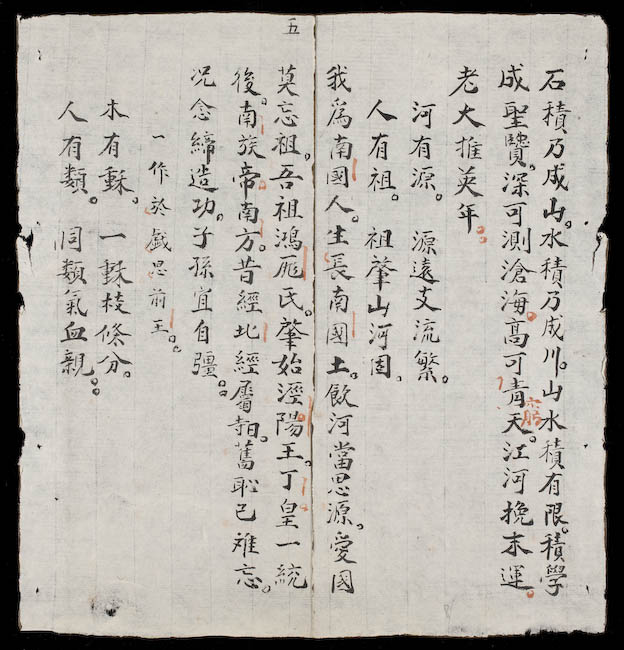 五
石積乃成山。水積乃成川。山水積有限。積學
成聖贒。深可測滄海。高可窮青天。江河挽末運。
老大推英年。
河有源。源遠支流繁。
人有祖。祖肇山河固。
我爲南國人。生長南國土。飲河當思源。愛國
莫忘祖。吾祖鴻厖氏。肇始涇陽王。丁皇一統
後。南族帝南方。昔經北經屬。舊恥已难忘。
况念締造功。子孫宜自彊。
一作於戲思前王。
木有。一枝條分。
人有類。同類氣血親。